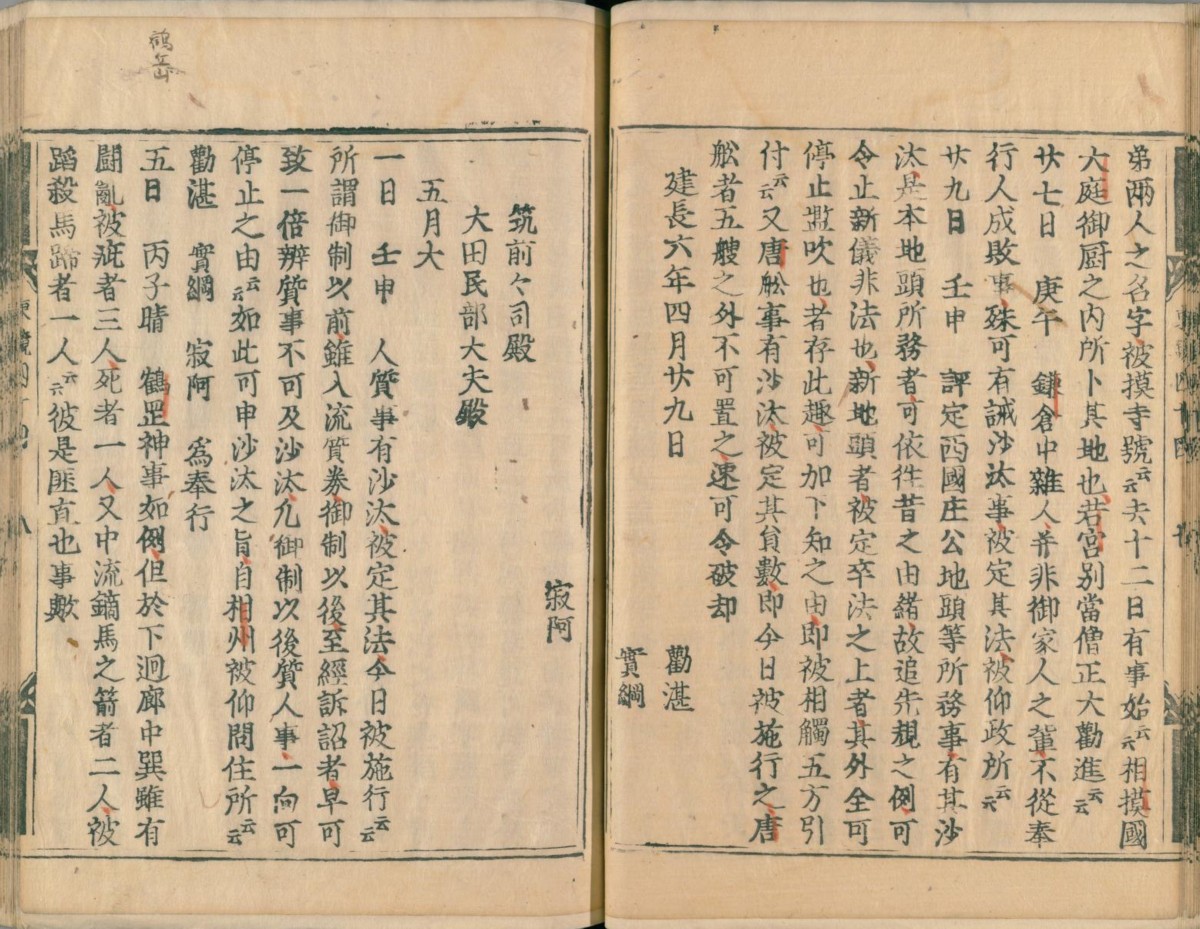 弟兩人之名字被摸寺號云云去十二日有事始云云相摸國
大庭御厨之内所卜其地也若宮別當僧正大勸進云云
廿七日　庚午　鎌倉中雜人并非御家人之輩不從奉
行人成敗事殊可有誡沙汰事被定其法被仰政所云云
廿九日　壬申　評定西國庄公地頭等所務事有其沙
汰是本地頭所務者可依徃昔之由緒故追先規之例可
令止新儀非法也新地頭者被定卒法之上者其外全可
停止監吹也者存此趣可加下知之由即被相觸五方引
付云云又唐舩事有沙汰被定其員數即今日被施行之唐
舩者五艘之外不可置之速可令破却
建長六年四月廿九日
勸湛
實綱
寂阿
筑前々司殿
大田民部大夫殿
五月大
一日　壬申　人質事有沙汰被定其法今日被施行云云
所謂御制以前雖入流質券御制以後至經訴詔者早可
致一倍辨質事不可及沙汰九御制以後質人事一向可
停止之由云云如此可申沙汰之旨自相州被仰問住所云云
勸湛　實綱　寂阿　爲奉行
五日　丙子晴　鶴罡神事如例但於下迴廊中巽雖有
闘亂被疵者三人死者一人又中流鏑馬之箭者二人被
蹈殺馬蹄者一人云云彼是匪直也事歟
鶴岳
東鑑四十四
八